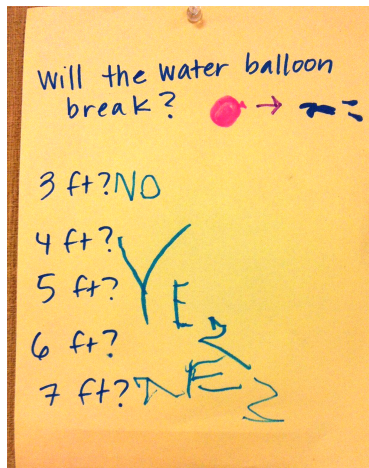 Will the water balloon
break?
3 ft? NO
4 ft? YES
5 ft?
6 ft?
7 ft? YES